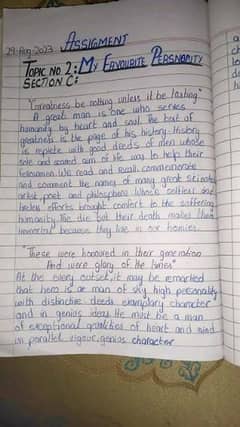 29-Aug-2023 ASSIGMENT
TOPIC NO. 2: MY FAVOURITE PERSNACITY
SECTION C:
"Greatness be nothing unless it be lasting"
A great man is one who serves
humanity by heart and soul. The boat of
greatness is the page of his history. History
is replete with good deeds of men whose
sole and soared aim of life was to help their
fellowmen. We read and recall commemorate
and comment the names of many great scientist
artist, poet and philosophy whose selfless and
tireless efforts brought comfort to the suffering
humanity. The die but their death makes them
immortal because they live in our homies.
"These were honoured in their generation
And were glory of the times"
At the every outset, it may be remarked
that hero is a man of sky high personality
with distinctive deeds exemplary character
and in genius ideas. He must be a man
of exceptional qualities of heart and mind
un parallel vigour, genius character